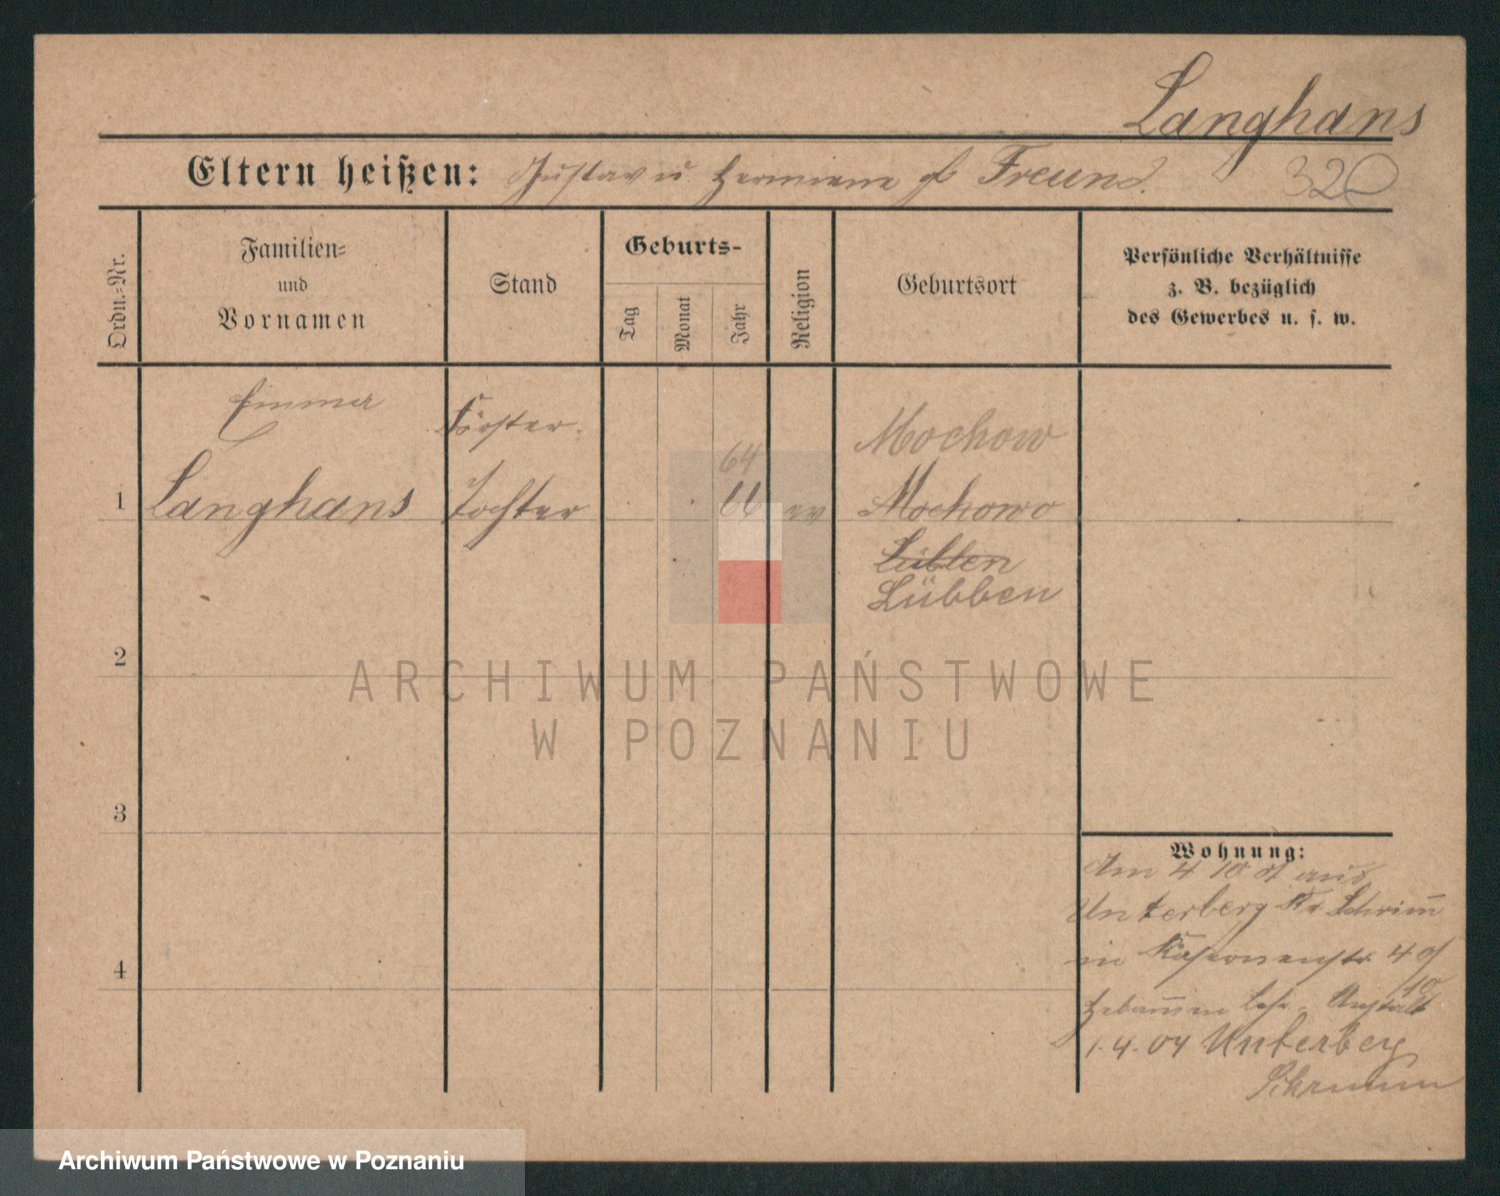 Langhans
Eltern heißen: Gustav u Hermiene gb Freund.
320
Ordn.=Nr.
Familien=
und
Vornamen
Stand
Geburts-
Tag
Monat
Jahr
Religion
Geburtsort
Persönliche Verhältnisse
z. B. bezüglich
des Gewerbes u. s. w.
Emma
Förster
Mochow
64
1 Langhans Tochter 66 ev Mochowo
Lübben
Lübben
2
3
4
Wohnung:
Am 4 10 01 aus
Unterberg Kr Schrim̅
in Kasernenstr 4
Hebam̅en Lehr-Anstalt
1.4.04 Unterberg
Schrimm
ARCHIWUM PAŃSTWOWE
W POZNANIU
Archiwum Państwowe w Poznaniu